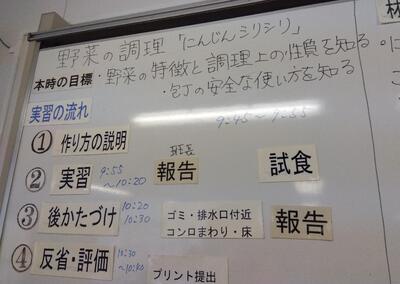 野菜の調理「にんじんシリシリ」
本時の目標・野菜の特徴と調理上の性質を知る
・包丁の安全な使い方を知る
実習の流れ
9:45~9:55
① 作り方の説明
② 実習 9:55~10:20 班長 報告 試食
③ 後かたづけ 10:20 10:30 ゴミ・排水口付近 コンロまわり・床 報告
④ 反省・評価 10:30~10:40 プリント提出